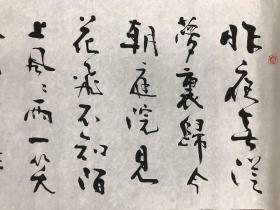 昨夜春從
夢裏歸今
朝庭院見
花飛不知陌
上風〻雨一笑